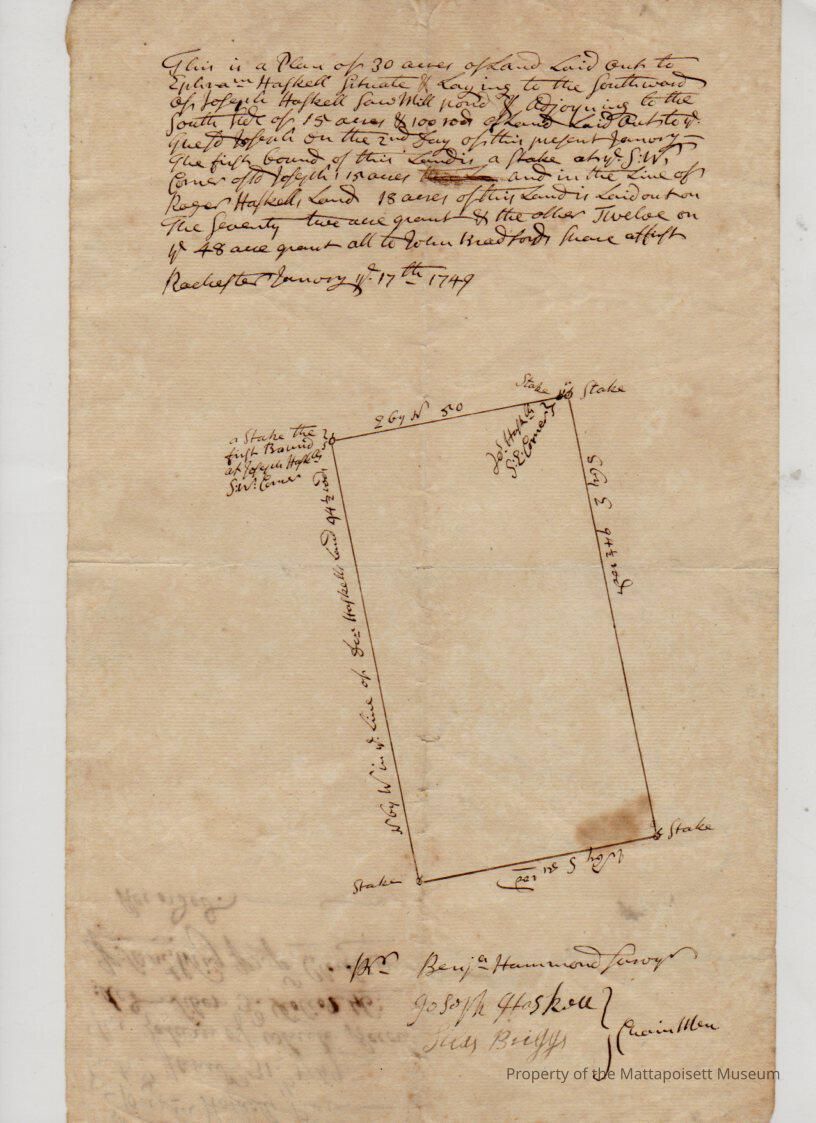 This is a Plan of 30 acres of Land Laid out to
Ephraᵐ Haskell Situate & Laying to the Southward
of Joseph Haskell Saw Mill pond & adjoyning to the
South side of 15 acres & 100 rods of Land Laid out to yᵉ
Joseph on the 2nd Day of this present Janory
the first bound of this Land is a Stake at yᵉ S:Wᵗ
Corner of sᵈ Joseph's 15 acres and in the Line of
Roger Haskells Land 18 acres of this Land is Laid out on
the Seventy two acre grant & the other Twelve on
yᵉ 48 acre grant all to John Bradfords Share
Rochester Janory yᵉ 17ᵗʰ 1749
Stake
Stake
E by N 50
a Stake the
first Bound
at Joseph Haskells
S:Wᵗ Corner
Joˢ Haskells
S:E: Corner
S by E 94½ rod
N by W in yᵉ Line of Haskells Land 94½ rod
Stake
W by S 51 rod
Stake
Pʳ Benjᵃ Hammond Survoyʳ
Joseph Haskell
Briggs
Chain Men
Property of the Mattapoisett Museum